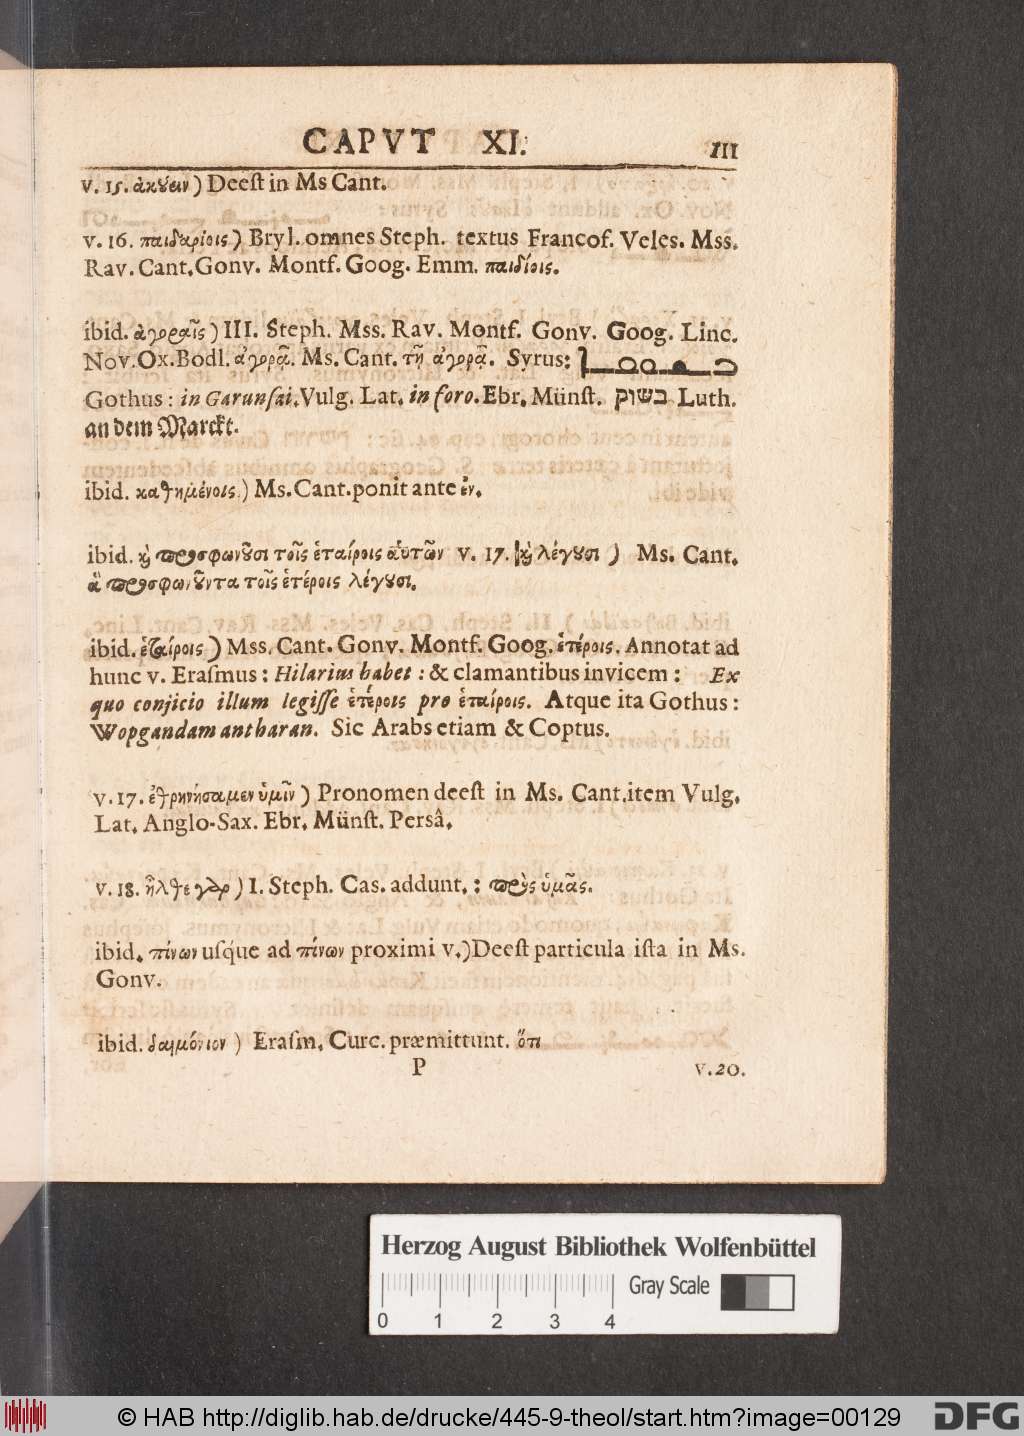 CAPVT XI. 111
v. 15. ἀκούειν) Deeſt in Ms Cant.
v. 16. παιδαρίοις) Bryl. omnes Steph. textus Francof. Veles. Mss.
Rav. Cant. Gonv. Montf. Goog. Emm. παιδίοις.
ibid. ἀγοραῖς) III. Steph. Mss. Rav. Montf. Gonv. Goog. Linc.
Nov. Ox. Bodl. ἀγορᾷ. Ms. Cant. τῇ ἀγορᾷ. Syrus:
Gothus: in Garunſai. Vulg. Lat. in foro. Ebr. Münſt. בשוק Luth.
an dem Marckt.
ibid. καθημένοις) Ms. Cant. ponit ante ἐν.
ibid. καὶ προσφωνοῦσι τοῖς ἑταίροις αὑτῶν v. 17. καὶ λέγουσι) Ms. Cant.
ἃ προσφωνοῦντα τοῖς ἑτέροις λέγουσι.
ibid. ἑταίροις) Mss. Cant. Gonv. Montf. Goog. ἑτέροις. Annotat ad
hunc v. Eraſmus: Hilarius habet: & clamantibus invicem: Ex
quo conjicio illum legiſſe ἑτέροις pro ἑταίροις. Atque ita Gothus:
Wopgandam antharan. Sic Arabs etiam & Coptus.
v. 17. ἐθρηνήσαμεν ὑμῖν) Pronomen deeſt in Ms. Cant. item Vulg.
Lat. Anglo-Sax. Ebr. Münſt. Persâ.
v. 18. ἦλθε γὰρ) I. Steph. Cas. addunt.: πρὸς ὑμᾶς.
ibid. πίνων uſq́ue ad πίνων proximi v.) Deeſt particula iſta in Ms.
Gonv.
ibid. δαιμόνιον) Eraſm. Curc. præmittunt. ὅτι
P v. 20.
Herzog August Bibliothek Wolfenbüttel
Gray Scale
0 1 2 3 4
© HAB http://diglib.hab.de/drucke/445-9-theol/start.htm?image=00129
DFG